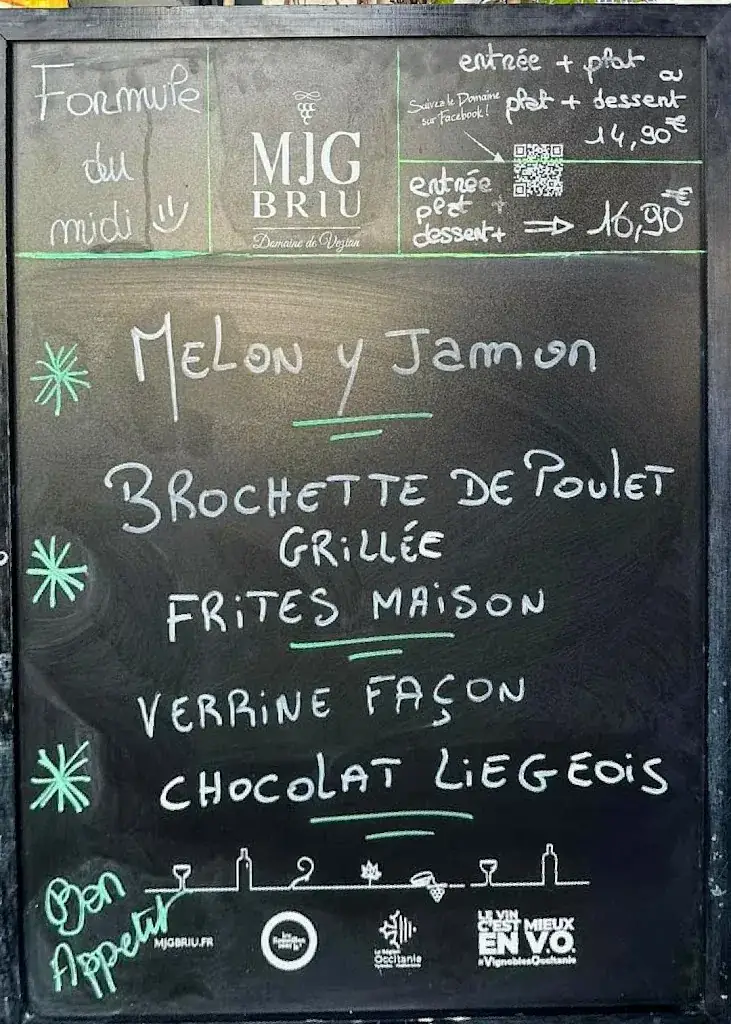 Formule
du
midi
MJG
BRIU
Domaine de Vezian
entrée + plat ou
Suivez le Domaine
sur Facebook !
plat + dessent
14,90€
entrée
plat +
dessent+
⇒ 16,90€
MELON y Jamon
BROCHETTE DE POULET
GRILLÉE
FRITES MAISON
VERRINE FAÇON
CHOCOLAT LIEGEOIS
Bon
Appetit
MJGBRIU.FR
La Région
Occitanie
LE VIN
C'EST MIEUX
EN V.O.
#VignoblesOccitanie